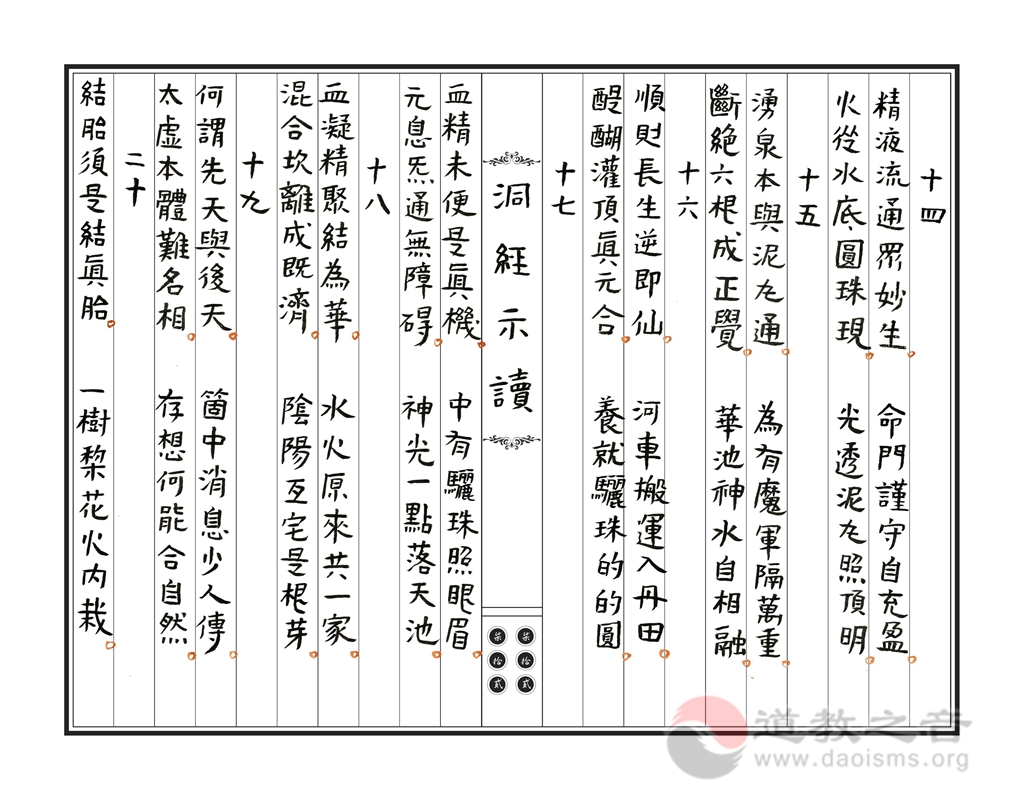 十四
精液流通眾妙生 命門謹守自充盈
火從水底圓珠現 光透泥丸照頂明
十五
湧泉本與泥丸通 為有魔軍隔萬重
斷絕六根成正覺 華池神水自相融
十六
順則長生逆即仙 河車搬運入丹田
醍醐灌頂眞元合 養就驪珠的的圓
十七
洞經示讀
柒拾貳
柒拾貳
血精未便是眞機 中有驪珠照眼眉
元息炁通無障碍 神光一點落天池
十八
血凝精聚結為華 水火原來共一家
混合坎離成既濟 陰陽互宅是根芽
十九
何謂先天與後天 箇中消息少人傳
太虛本體難名相 存想何能合自然
二十
結胎須是結眞胎 一樹梨花火內栽
道教之音
www.daoisms.org